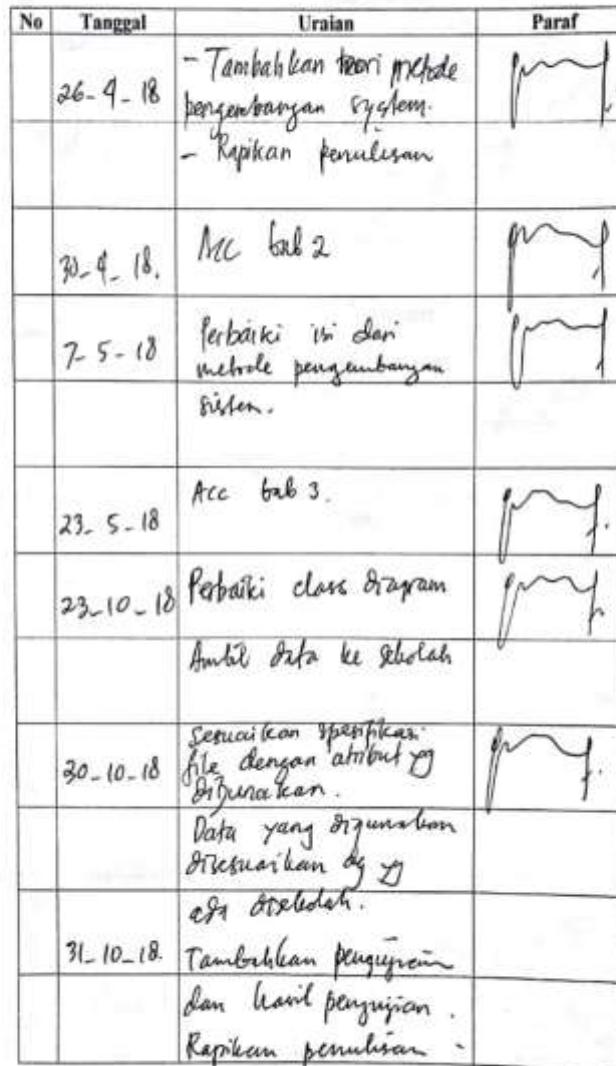 No Tanggal Uraian Paraf
26-4-18 - Tambahkan teori metode
pengembangan system.
- Rapikan penulisan
30-4-18. Acc bab 2
7-5-18 Perbaiki isi dari
metode pengembangan
sistem.
23-5-18 Acc bab 3.
23-10-18 Perbaiki class diagram
Ambil data ke sekolah
30-10-18 Sesuaikan spesifikasi
file dengan atribut yg
digunakan.
Data yang digunakan
disesuaikan dg yg
ada disekolah.
31-10-18. Tambahkan pengujian
dan hasil pengujian.
Rapikan penulisan -